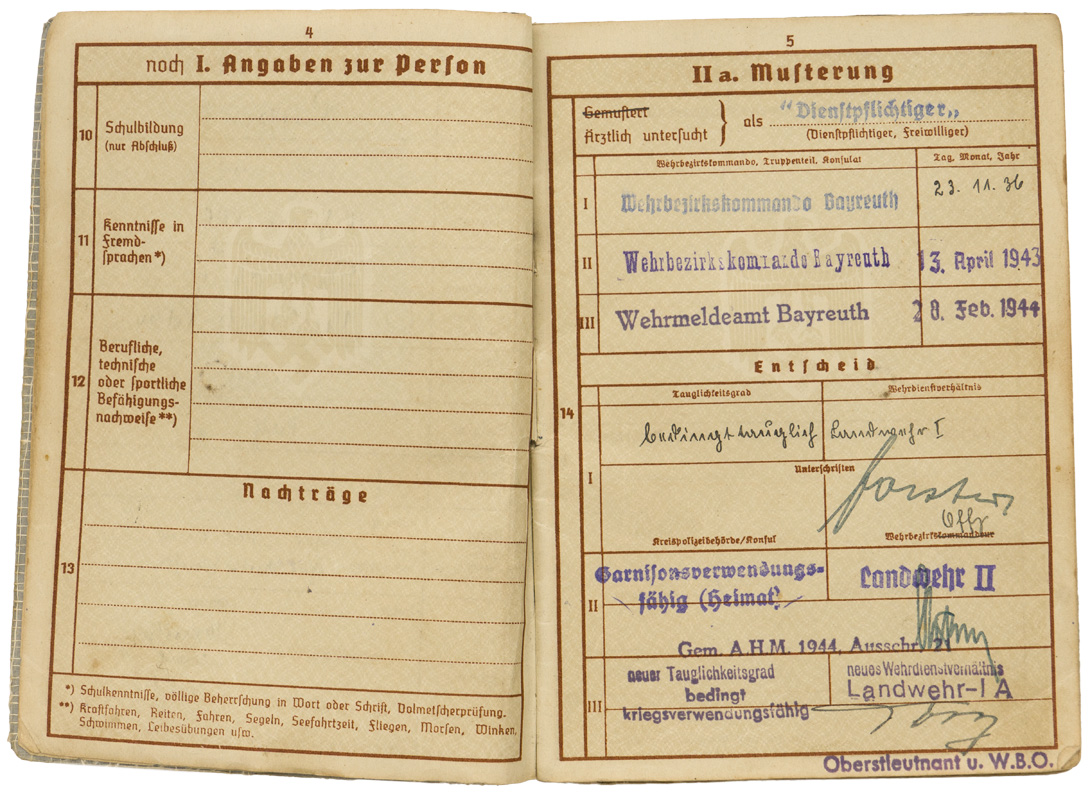 4
noch I. Angaben zur Person
10
Schulbildung
(nur Abschluß)
11
Kenntnisse in
Fremd-
sprachen*)
12
Berufliche,
technische
oder sportliche
Befähigungs-
nachweise**)
Nachträge
13
*) Schulkenntnisse, völlige Beherrschung in Wort oder Schrift, Dolmetscherprüfung.
**) Kraftfahren, Reiten, Fahren, Segeln, Seefahrtzeit, Fliegen, Morsen, Winken,
Schwimmen, Leibesübungen usw.
5
IIa. Musterung
Gemustert
Ärztlich untersucht
als "Dienstpflichtiger„
(Dienstpflichtiger, Freiwilliger)
Wehrbezirkskommando, Truppenteil, Konsulat
Tag, Monat, Jahr
I
Wehrbezirkskommando Bayreuth
23. 11. 36
II
Wehrbezirkskommando Bayreuth
13. April 1943
III
Wehrmeldeamt Bayreuth
28. Feb. 1944
Entscheid
14
Tauglichkeitsgrad
Wehrdienstverhältnis
I
bedingt tauglich
Landwehr I
Unterschriften
Offz
Kreispolizeibehörde/Konsul
Wehrbezirkskommandeur
II
Garnisonsverwendungs-
fähig (Heimat)
Landwehr II
Gem. A.H.M. 1944, Ausschn. 21
III
neuer Tauglichkeitsgrad
bedingt
kriegsverwendungsfähig
neues Wehrdienstverhältnis
Landwehr-I A
Oberstleutnant u. W.B.O.